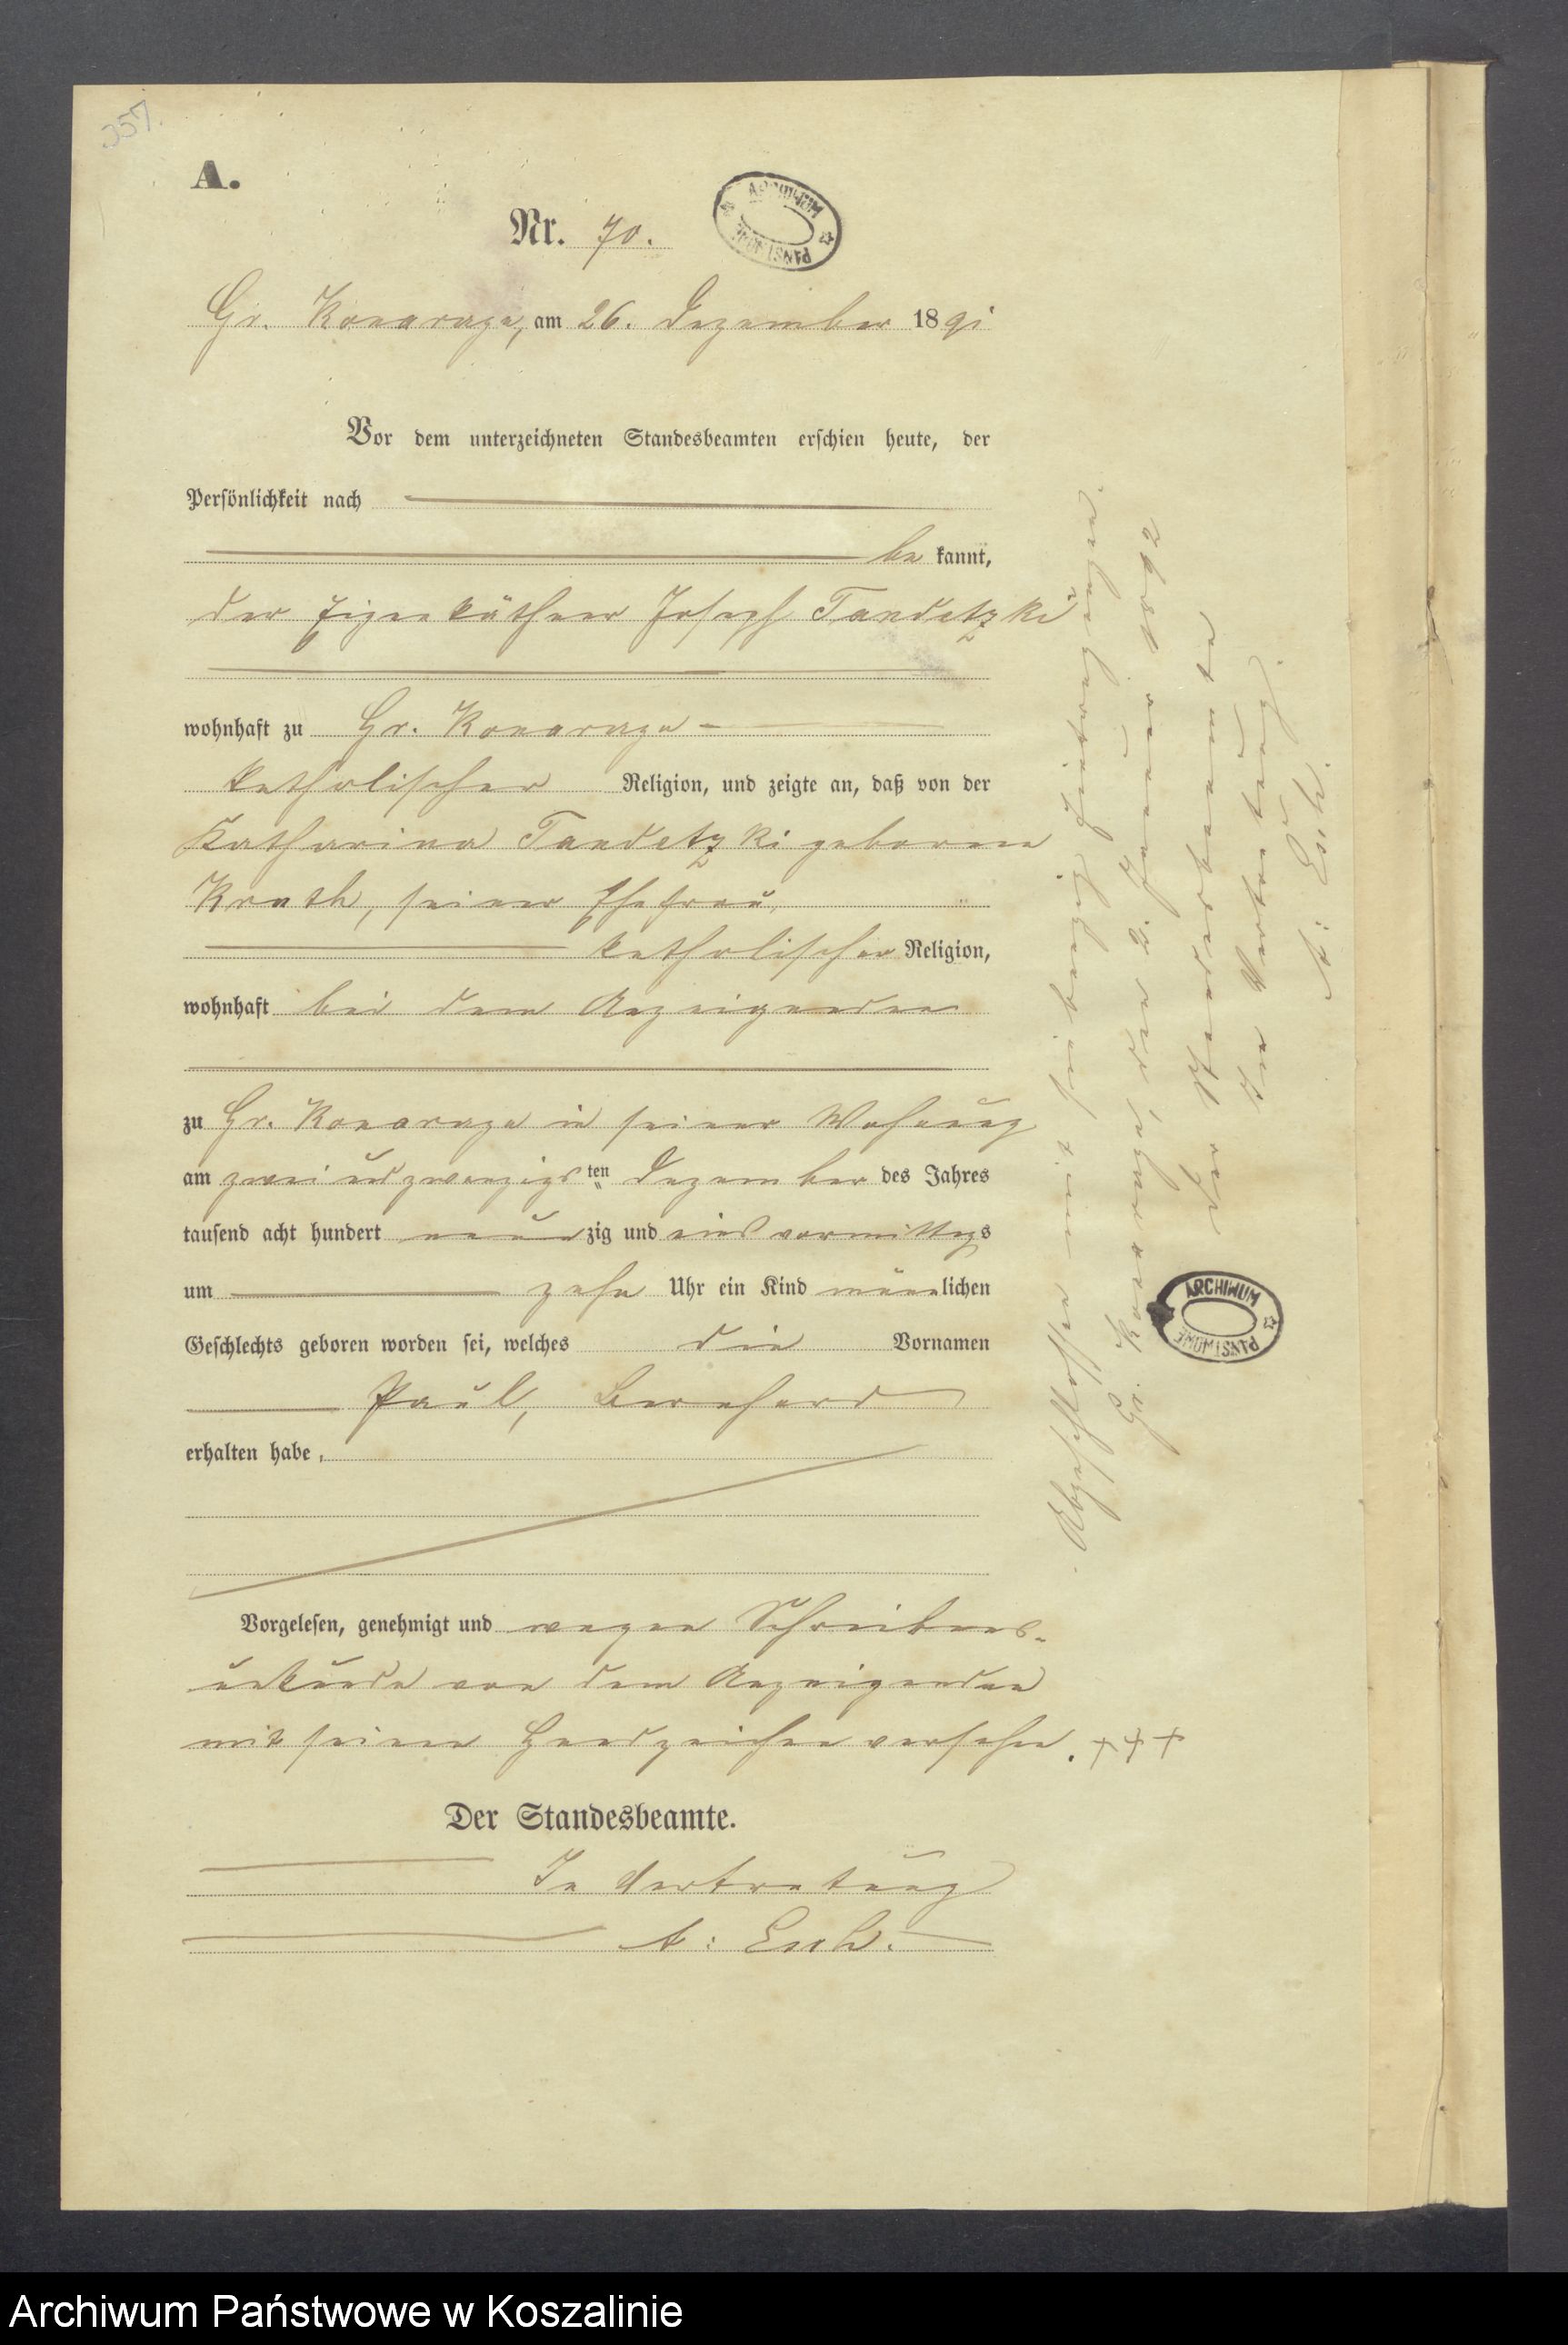 357.
A.
Nr. 70.
ARCHIWUM PAŃSTWOWE
Gr. Konarzyn, am 26. Dezember 1891
Vor dem unterzeichneten Standesbeamten erschien heute, der
Persönlichkeit nach
be kannt,
der Eigenkäthner Joseph Tandetzki
wohnhaft zu Gr. Konarzyn
katholischer Religion, und zeigte an, daß von der
Katharina Tandetzki geborene
Knuth, seiner Ehefrau,
katholischer Religion,
wohnhaft bei dem Anzeigenden
zu Gr. Konarzyn in seiner Wohnung
am zweiundzwanzigsten Dezember des Jahres
tausend acht hundert neunzig und eins vormittags
um zehn Uhr ein Kind männlichen
Geschlechts geboren worden sei, welches die Vornamen
Paul, Bernhard
erhalten habe.
Vorgelesen, genehmigt und wegen Schreibens-
unkunde von dem Anzeigenden
mit seinem Handzeichen versehen. +++
Der Standesbeamte.
In Vertretung
A: Esch.
Abgeschlossen mit siebenzig Eintragungen.
Gr. Konarzyn, den 2. Januar 1892
Der Standesbeamte
In Vertretung.
A: Esch.
ARCHIWUM PAŃSTWOWE
Archiwum Państwowe w Koszalinie